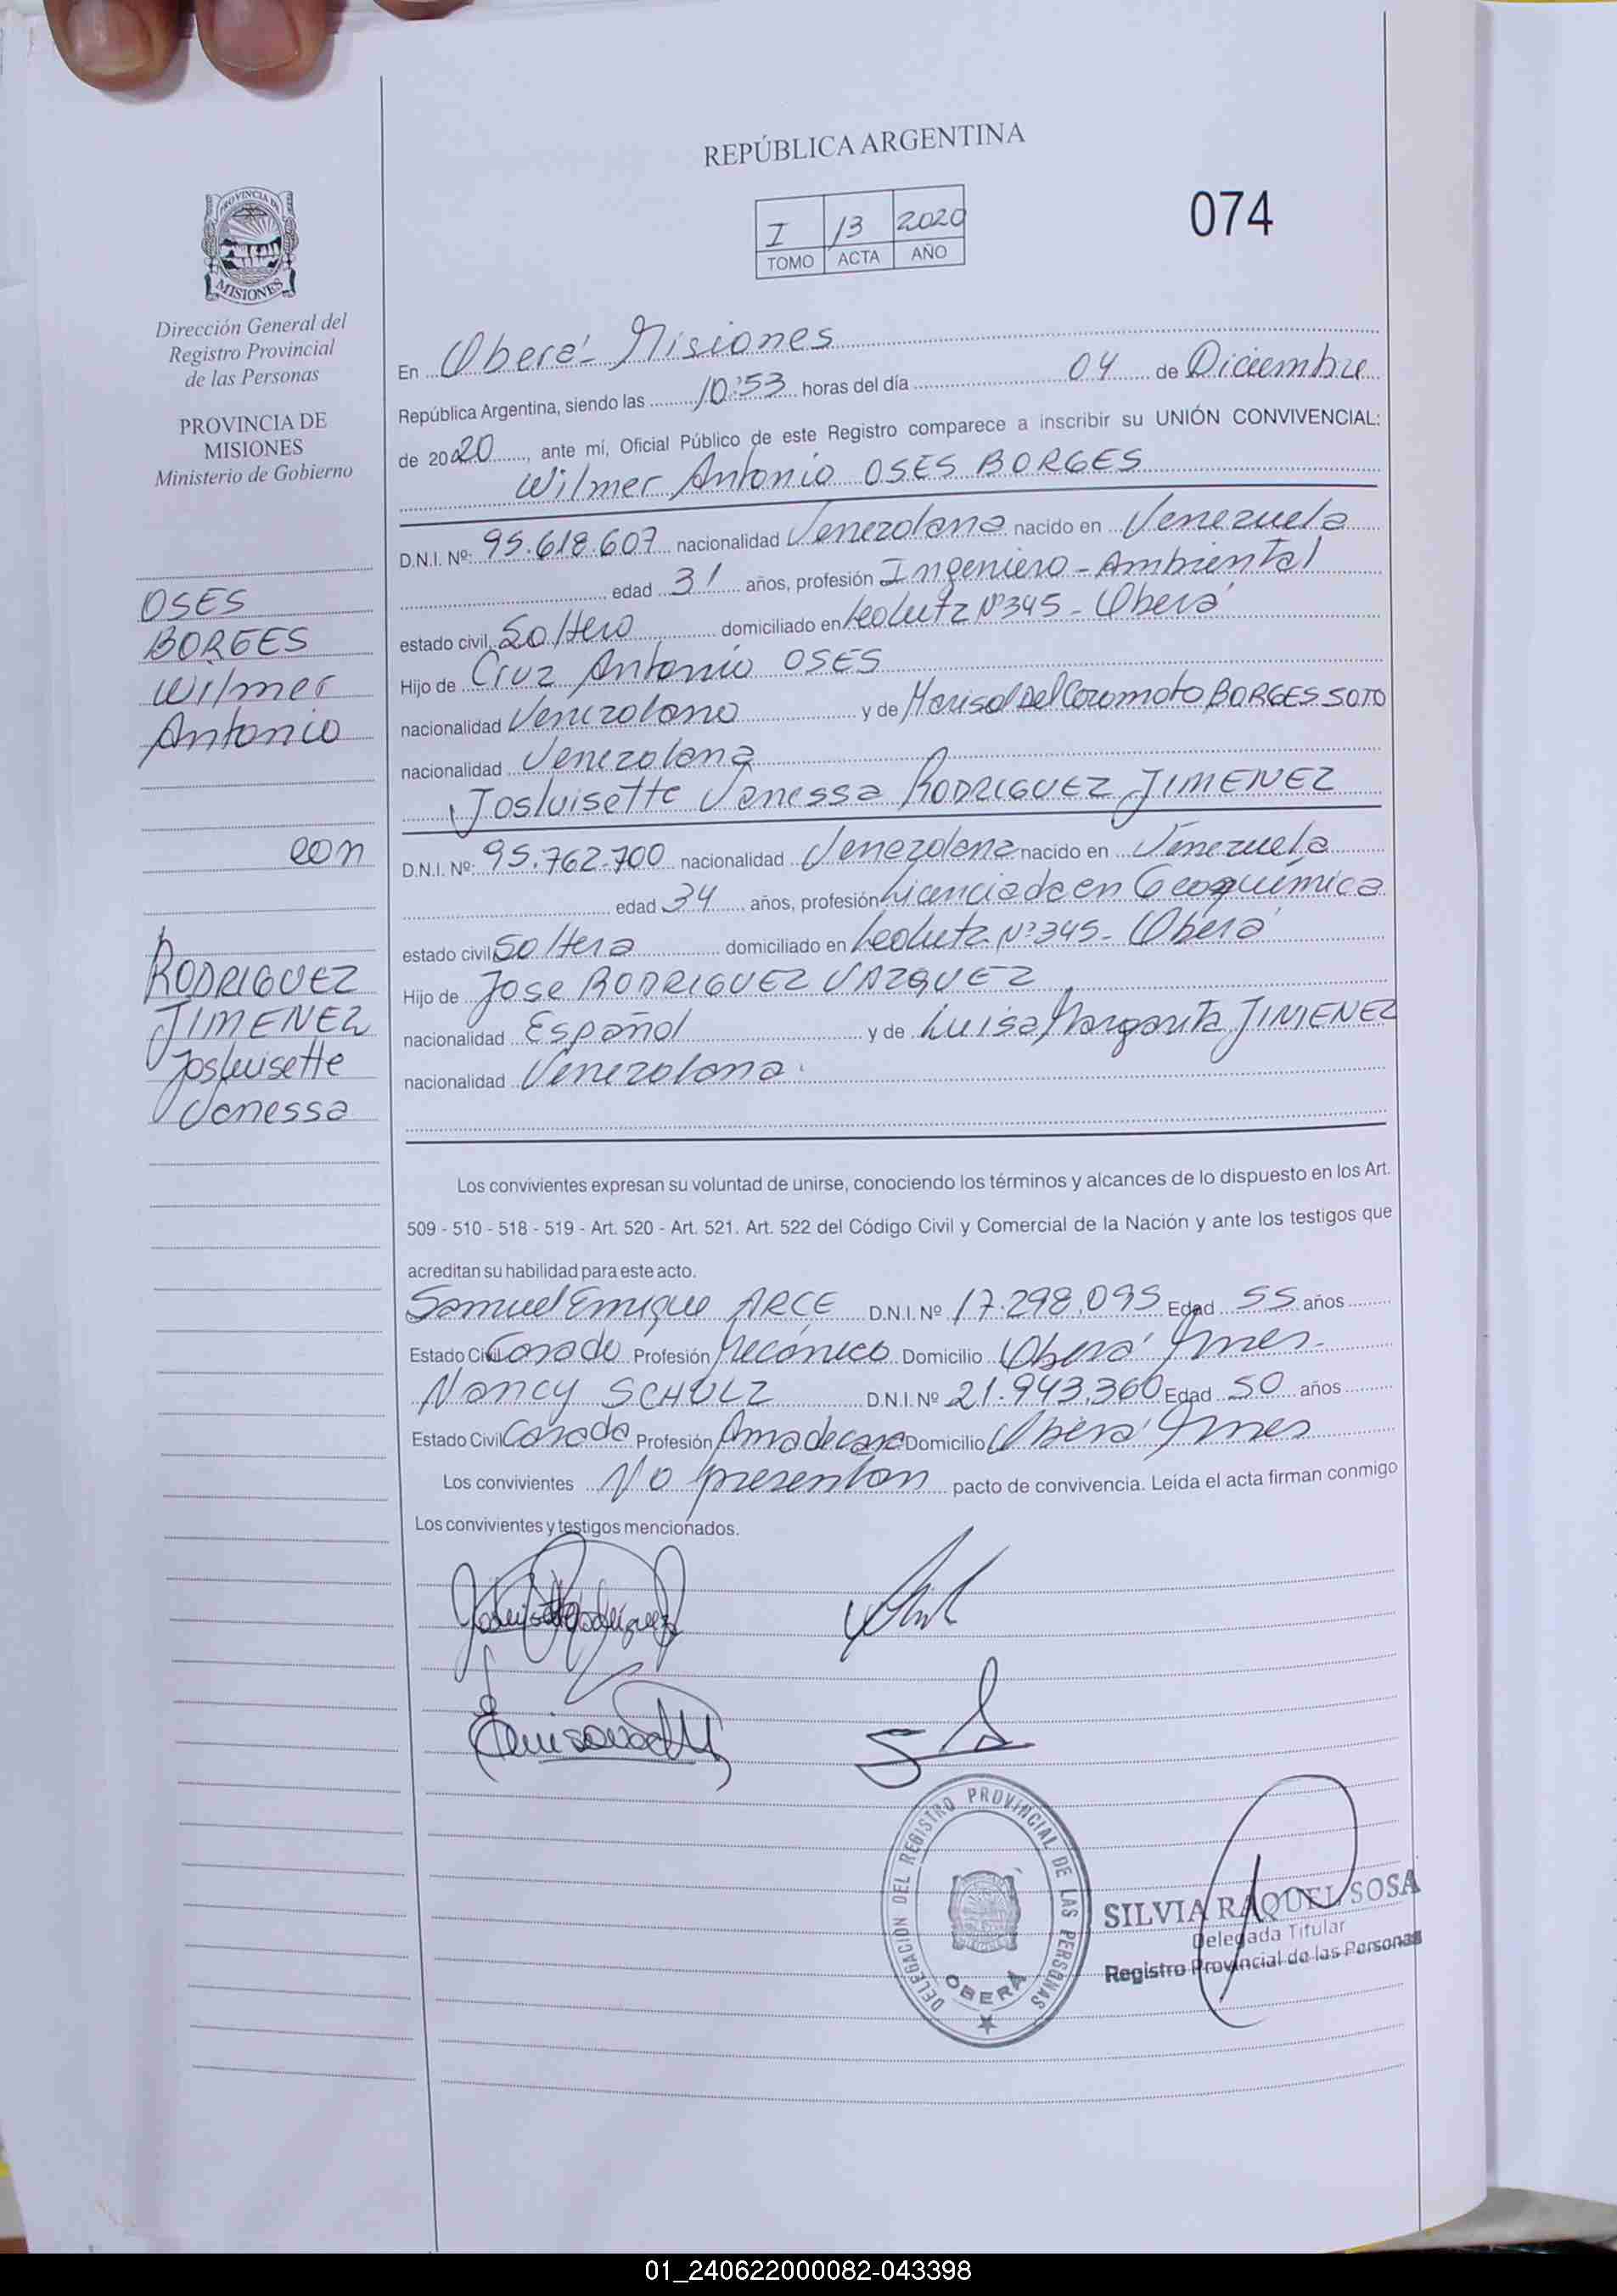 REPÚBLICA ARGENTINA
I 13 2020
TOMO ACTA AÑO
074
PROVINCIA DE
MISIONES
Dirección General del
Registro Provincial
de las Personas
PROVINCIA DE
MISIONES
Ministerio de Gobierno
OSES
BORGES
Wilmer
Antonio
con
RODRIGUEZ
JIMENEZ
Josluisette
Vanessa
En Oberá - Misiones
República Argentina, siendo las 10:53 horas del día 04 de Diciembre
de 2020, ante mí, Oficial Público de este Registro comparece a inscribir su UNIÓN CONVIVENCIAL:
Wilmer Antonio OSES BORGES
D.N.I. Nº: 95.618.607 nacionalidad Venezolana nacido en Venezuela
edad 31 años, profesión Ingeniero - Ambiental
estado civil Soltero domiciliado en Leo Lutz Nº 345 - Oberá
Hijo de Cruz Antonio OSES
nacionalidad Venezolano y de Marisol Del Coromoto BORGES SOTO
nacionalidad Venezolana
Josluisette Vanessa RODRIGUEZ JIMENEZ
D.N.I. Nº: 95.762.700 nacionalidad Venezolana nacido en Venezuela
edad 34 años, profesión Licenciada en Geoquímica
estado civil Soltera domiciliado en Leo Lutz Nº 345 - Oberá
Hijo de Jose RODRIGUEZ VAZQUEZ
nacionalidad Español y de Luisa Margarita JIMENEZ
nacionalidad Venezolana.
Los convivientes expresan su voluntad de unirse, conociendo los términos y alcances de lo dispuesto en los Art.
509 - 510 - 518 - 519 - Art. 520 - Art. 521. Art. 522 del Código Civil y Comercial de la Nación y ante los testigos que
acreditan su habilidad para este acto.
Samuel Enrique ARCE D.N.I. Nº 17.298.095 Edad 55 años
Estado Civil Casado Profesión Mecánico Domicilio Oberá Mnes.
Nancy SCHULZ D.N.I. Nº 21.943.360 Edad 50 años
Estado Civil Casada Profesión Ama de casa Domicilio Oberá Mnes
Los convivientes No presentan pacto de convivencia. Leída el acta firman conmigo
Los convivientes y testigos mencionados.
DELEGACION DEL REGISTRO PROVINCIAL DE LAS PERSONAS
OBERÁ
SILVIA RAQUEL SOSA
Delegada Titular
Registro Provincial de las Personas
01_240622000082-043398